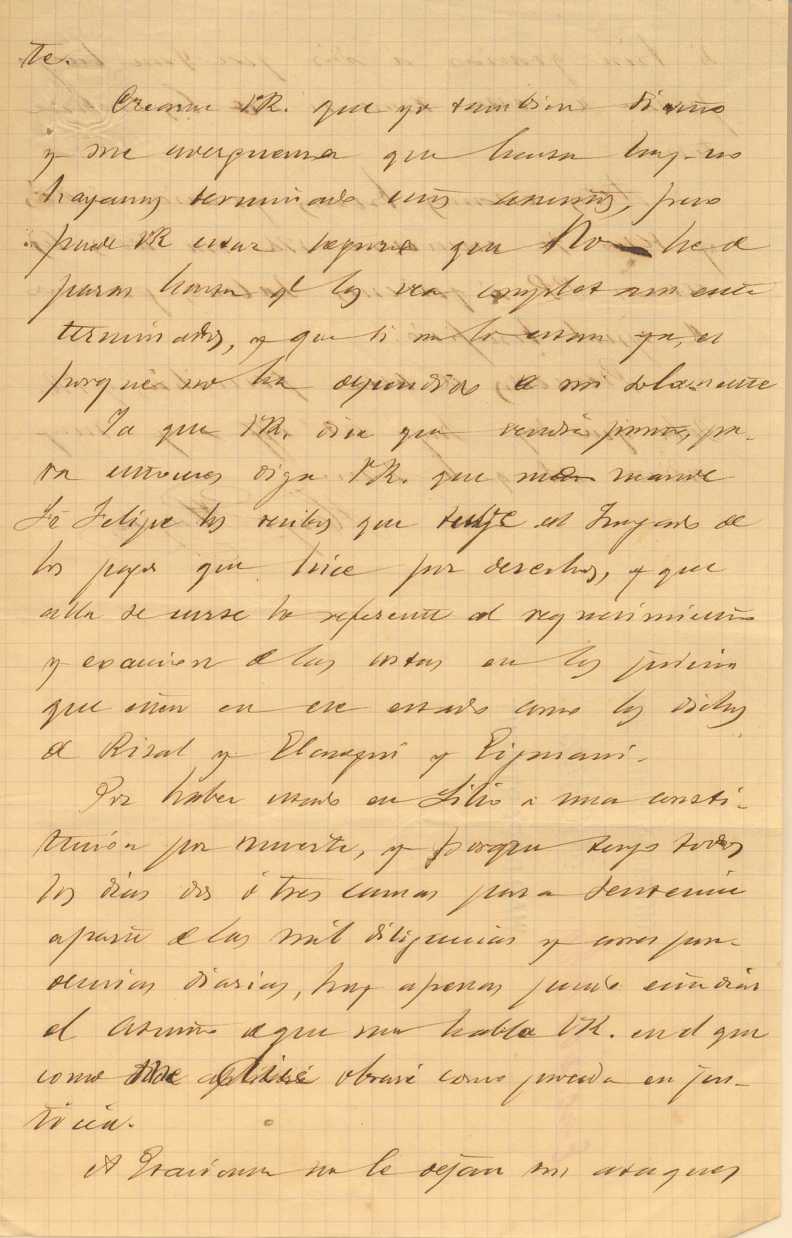 te.
Creame VR. que yo tambien siento
y me averguenza que hasta hoy no
hayamos terminado estos asuntos, pero
puede VR estar seguro que No he de
parar hasta qe los vea completamente
terminados, y que si no lo estan ya, es
porque no ha dependido de mi solamente
Ya que VR. dice que vendrá pronto, pa-
ra entonces diga VR. que me mande
Felipe los recibos que del Juzgado de
los pagos que hice por derechos, y que
alla se curse lo referente al requerimiento
y exaccion de las costas en los juicios
que esten en ese estado como los dichos
de Rizal y y
Por haber estado en Lilio á una consti-
tucion por muerte, y porque tengo todos
los dias dos ó tres causas para sentencia
aparte de las mil diligencias y corres pon-
dencias diarias, hoy apenas puedo estudiar
el asunto de que me habla VR. en el que
como obraré como proceda en jus-
ticia.
A no le dejan sus ataques